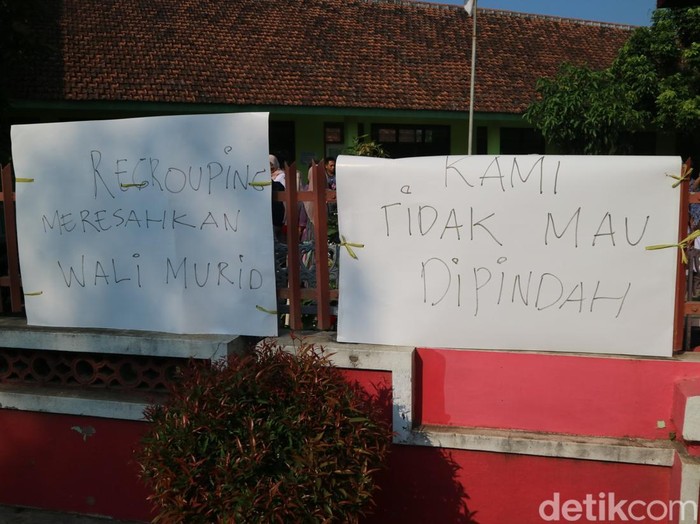 REGROUPING
MERESAHKAN
WALI MURID
KAMI
TIDAK MAU
DIPINDAH
detikcom